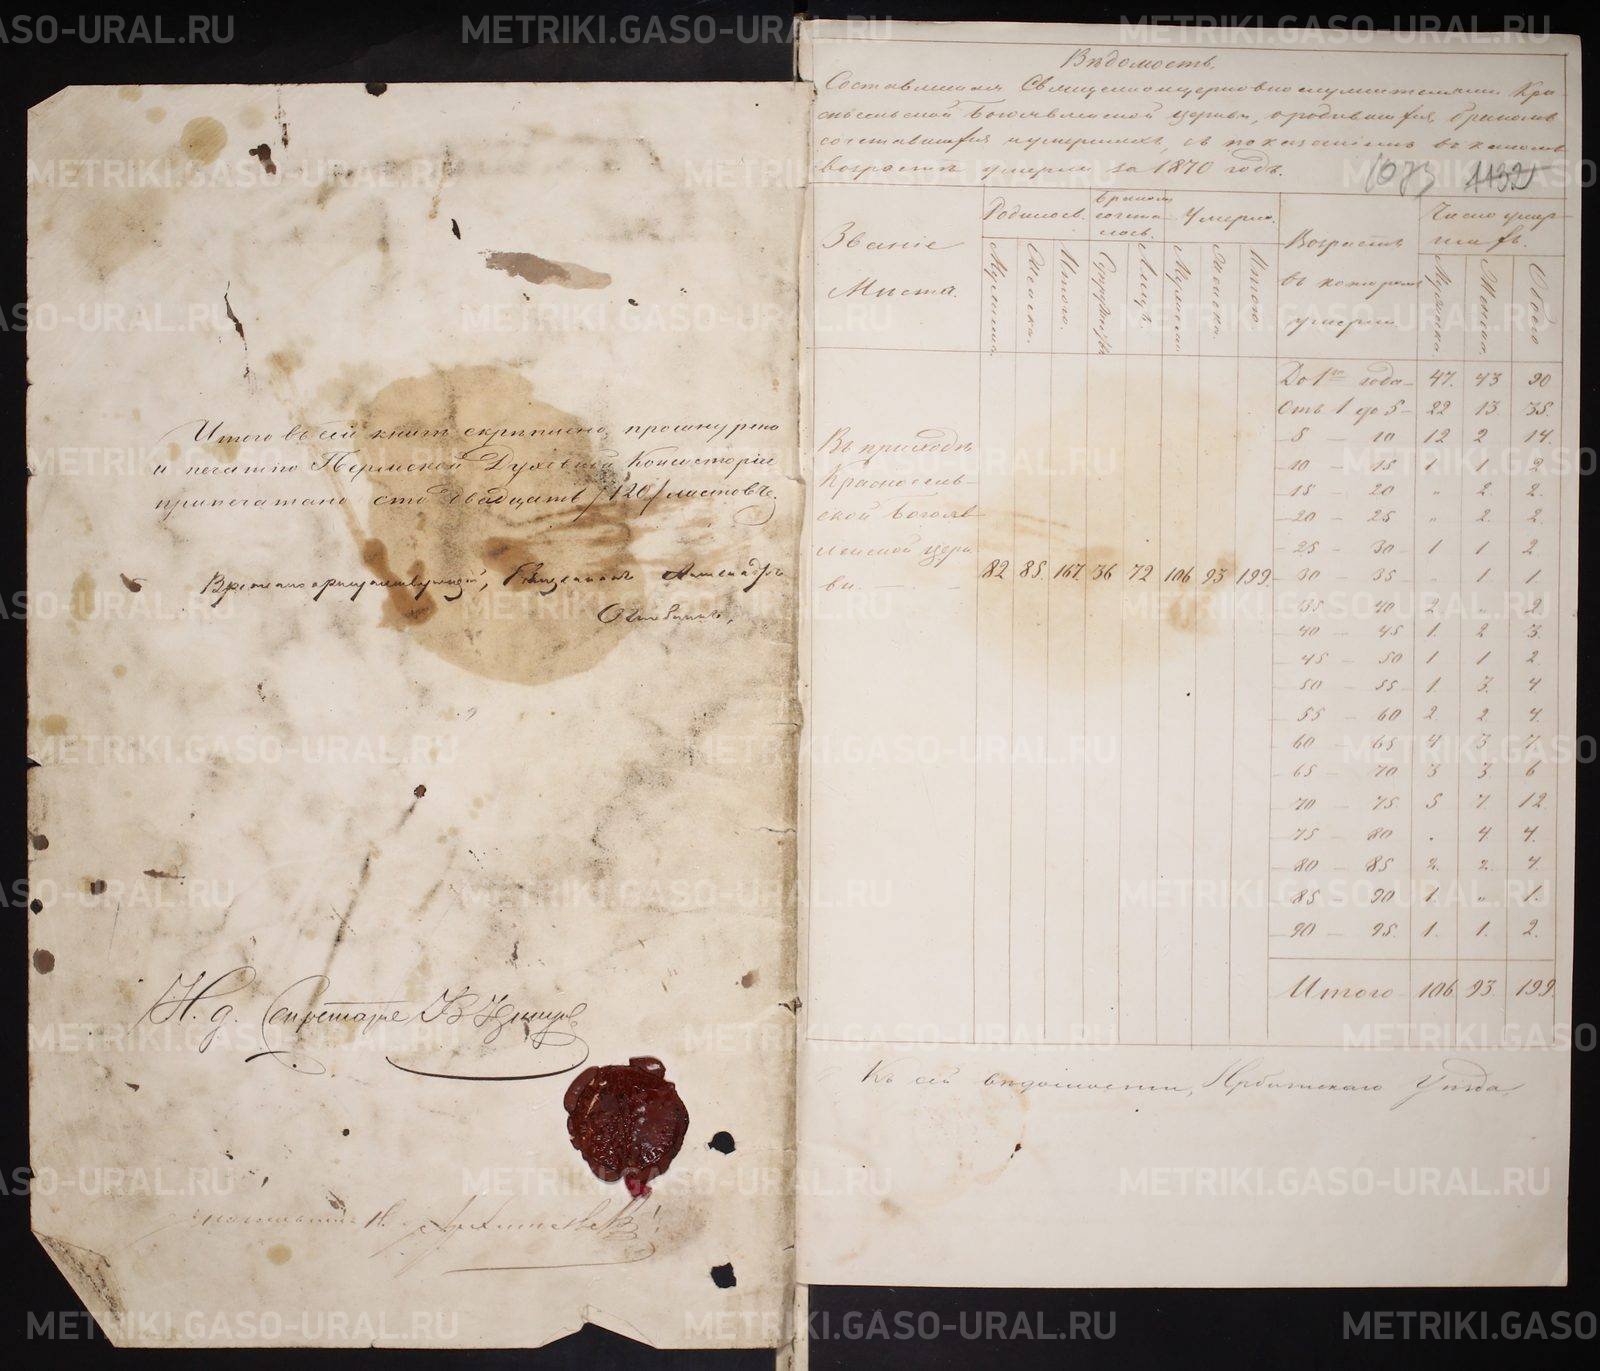 Итого въ сей книгѣ скрѣплено, прошнурено
и печатію Пермской Духовной Консисторіи
припечатано сто двадцать /120/ листовъ.
Священникъ Александръ
Н. д. Секретаря
Вѣдомость,
Составленная Священноцерковнослужителями Кра-
сносельской Богоявленской церкви, о родившихся, бракомъ
сочетавшихся и умершихъ, съ показаніемъ въ какомъ
возрастѣ умерли за 1870 годъ.
1132
Званіе
Мѣста.
Родилось. Бракомъ сочета- лось. Умерло.
Возрастъ
въ которомъ
умерли
Число умер-
шихъ.
Мужеска. Женска. Итого. Супружествъ Лицъ. Мужеска Женска. Итого.
Мужеска. Женска. Обоего
Въ приходѣ
Красносель-
ской Богояв-
ленской церк-
ви
82 85. 167. 36 72 106 93 199.
До 1го года 47. 43 90
Отъ 1 до 5 22 13 35.
5 10 12 2 14.
10 15 1 1 2
15 20 „ 2. 2.
20 25 „ 2. 2.
25 30 1 1 2
30 35 „ 1 1
35 40 2. „ 2
40 45 1. 2 3.
45 50 1 1 2.
50 55 1. 3. 4
55 60 2. 2 4.
60 65 4 3 7.
65 70 3 3 6
70 75 5 7. 12
75 80 „ 4 4.
80 85 2. 2. 4
85 90 1. „ 1.
90 95. 1. 1. 2.
Итого 106 93 199.
Къ сей вѣдомости, Ирбитскаго Уѣзда,
METRIKI.GASO-URAL.RU